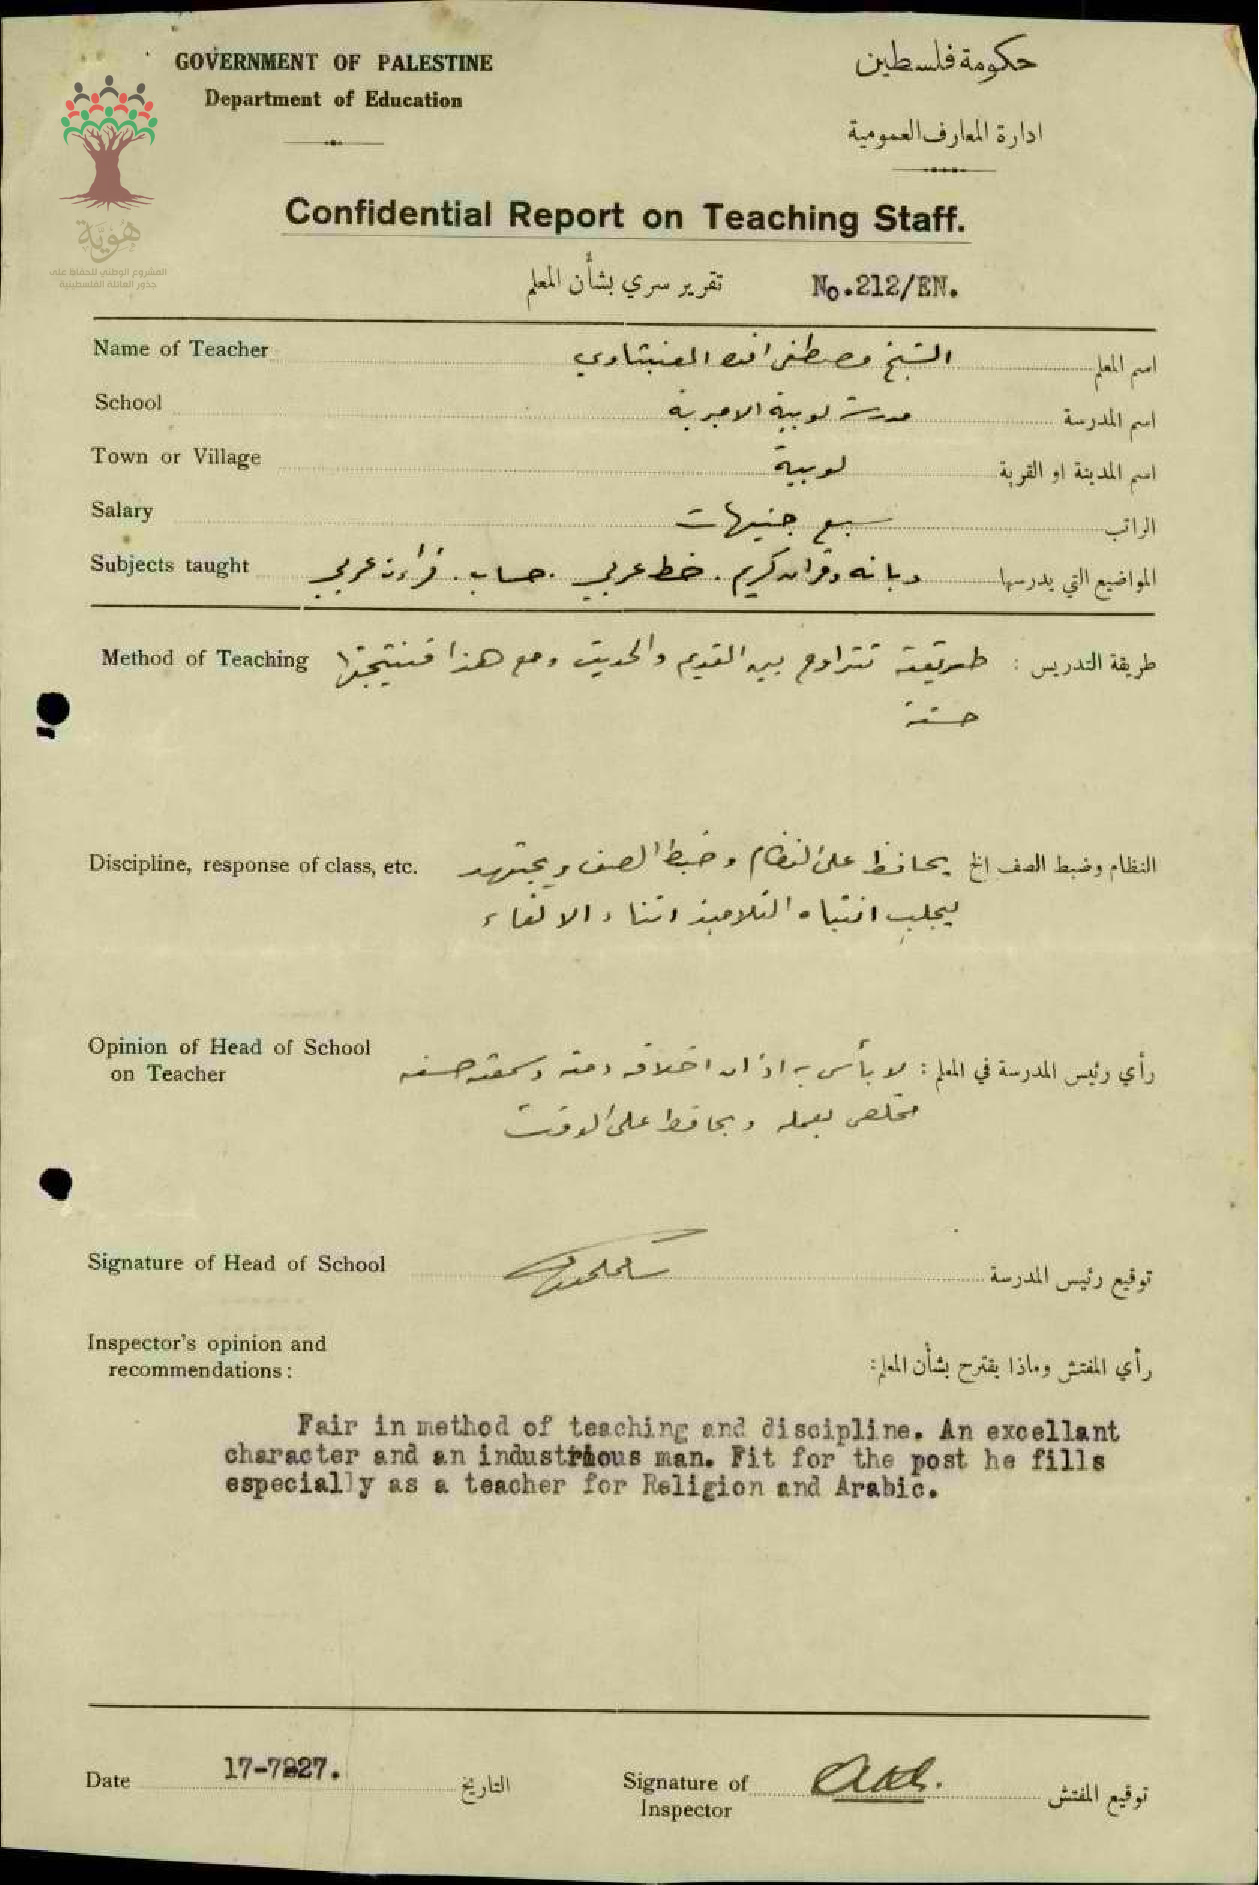 GOVERNMENT OF PALESTINE
Department of Education
حكومة فلسطين
ادارة المعارف العمومية
هُوِيَّة
المشروع الوطني للحفاظ على
جذور العائلة الفلسطينية
Confidential Report on Teaching Staff.
تقرير سري بشأن المعلم
No.212/EN.
Name of Teacher الشيخ مصطفى افندي اسم المعلم
School مدرسة لوبية الاميرية اسم المدرسة
Town or Village لوبية اسم المدينة او القرية
Salary سبع جنيهات الراتب
Subjects taught ديانه وقران كريم . خط عربي . حساب . قراءة عربي المواضيع التي يدرسها
Method of Teaching طريقة التدريس : طريقته تتراوح بين القديم والحديث ومع هذا فنتيجتها
حسنة
Discipline, response of class, etc. النظام وضبط الصف الخ يحافظ على النظام وضبط الصف ويجتهد
ليجلب انتباه التلاميذ اثناء الالقاء
Opinion of Head of School
on Teacher
رأي رئيس المدرسة في المعلم : لا بأس به اذ ان اخلاقه وسمعته حسنه
مخلص بعمله ويحافظ على الوقت
Signature of Head of School توقيع رئيس المدرسة
Inspector's opinion and
recommendations :
رأي المفتش وماذا يقترح بشأن المعلم:
Fair in method of teaching and discipline. An excellant
character and an industrious man. Fit for the post he fills
especially as a teacher for Religion and Arabic.
Date 17-7-27. التاريخ
Signature of
Inspector
توقيع المفتش